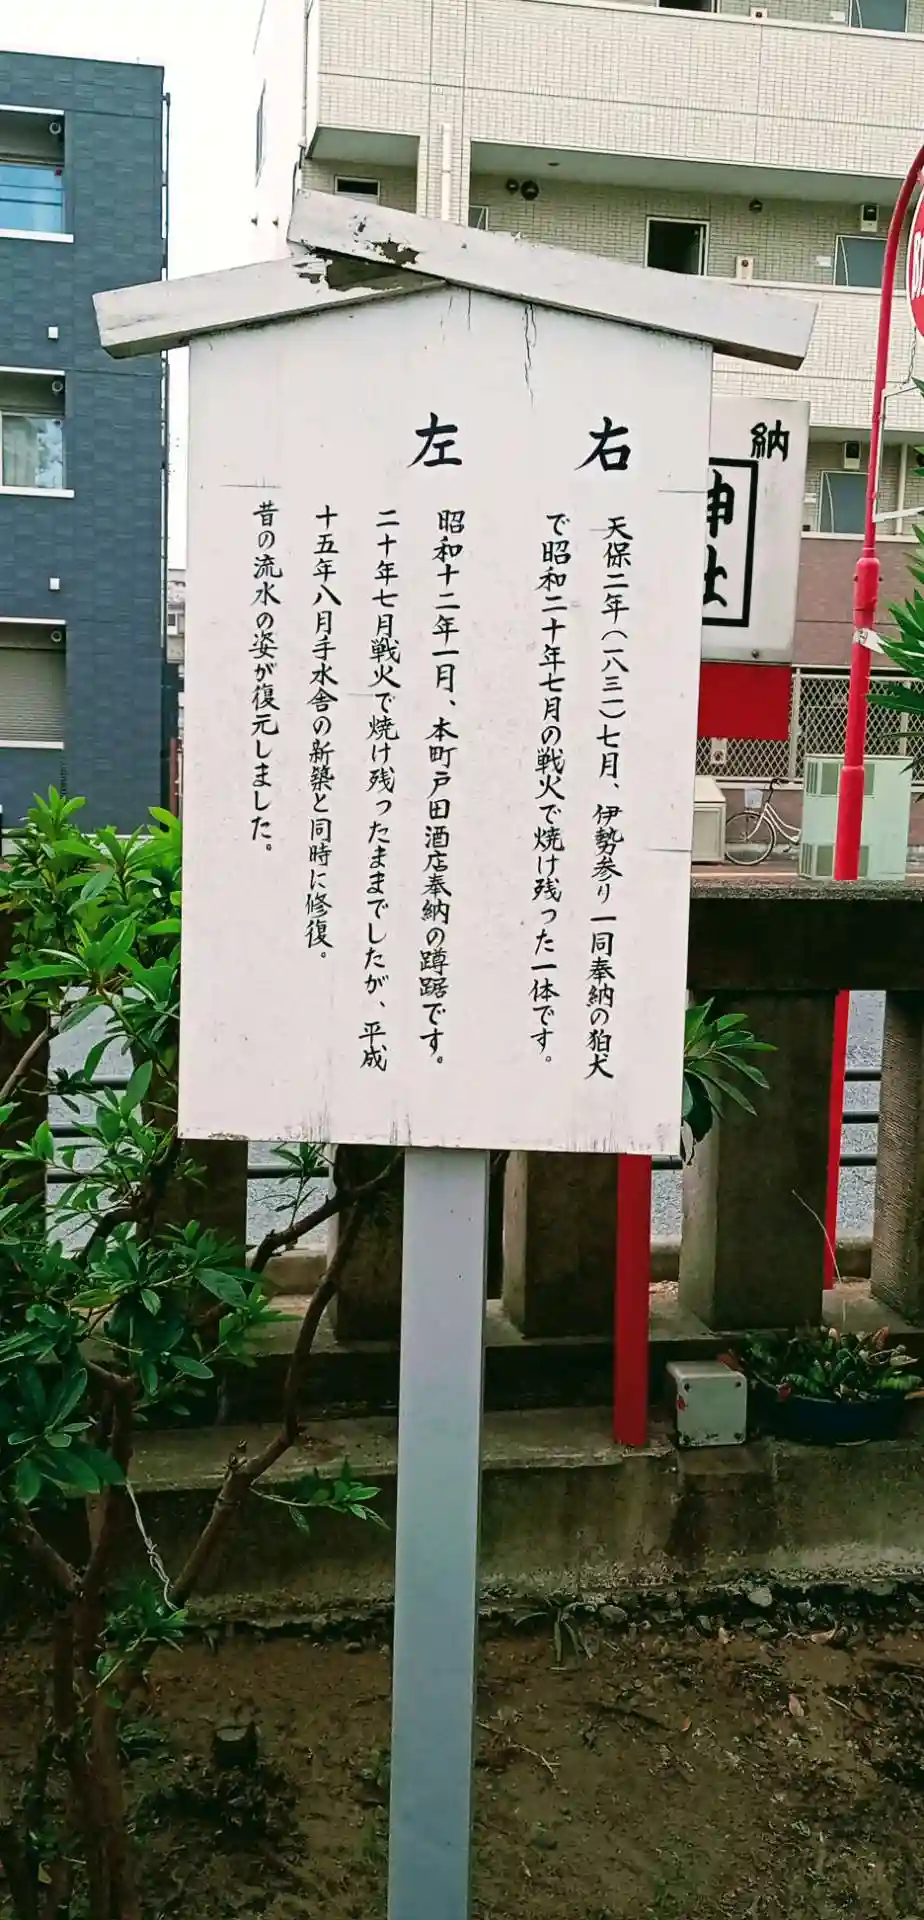 右
天保二年（一八三一）七月、伊勢参り一同奉納の狛犬
で昭和二十年七月の戦火で焼け残った一体です。
左
昭和十二年一月、本町戸田酒店奉納の蹲踞です。
二十年七月戦火で焼け残ったままでしたが、平成
十五年八月手水舎の新築と同時に修復。
昔の流水の姿が復元しました。
納
神社